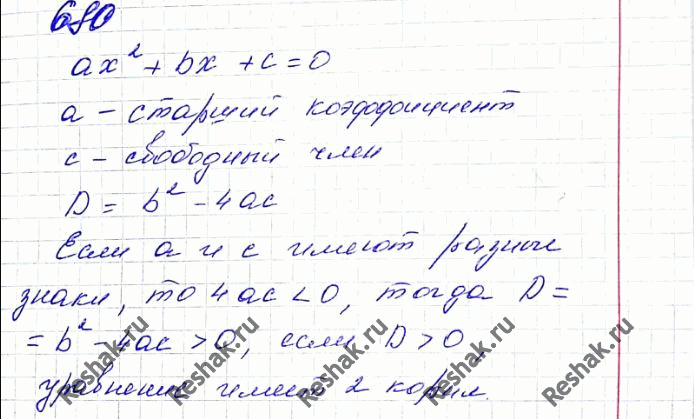 680
ax² + bx + c = 0
a – старший коэффициент
c – свободный член
D = b² – 4ac
Если a и c имеют разные
знаки, то 4ac < 0, тогда D =
= b² – 4ac > 0, если D > 0,
уравнение имеет 2 корня.
Reshak.ru
Reshak.ru
Reshak.ru
Reshak.ru